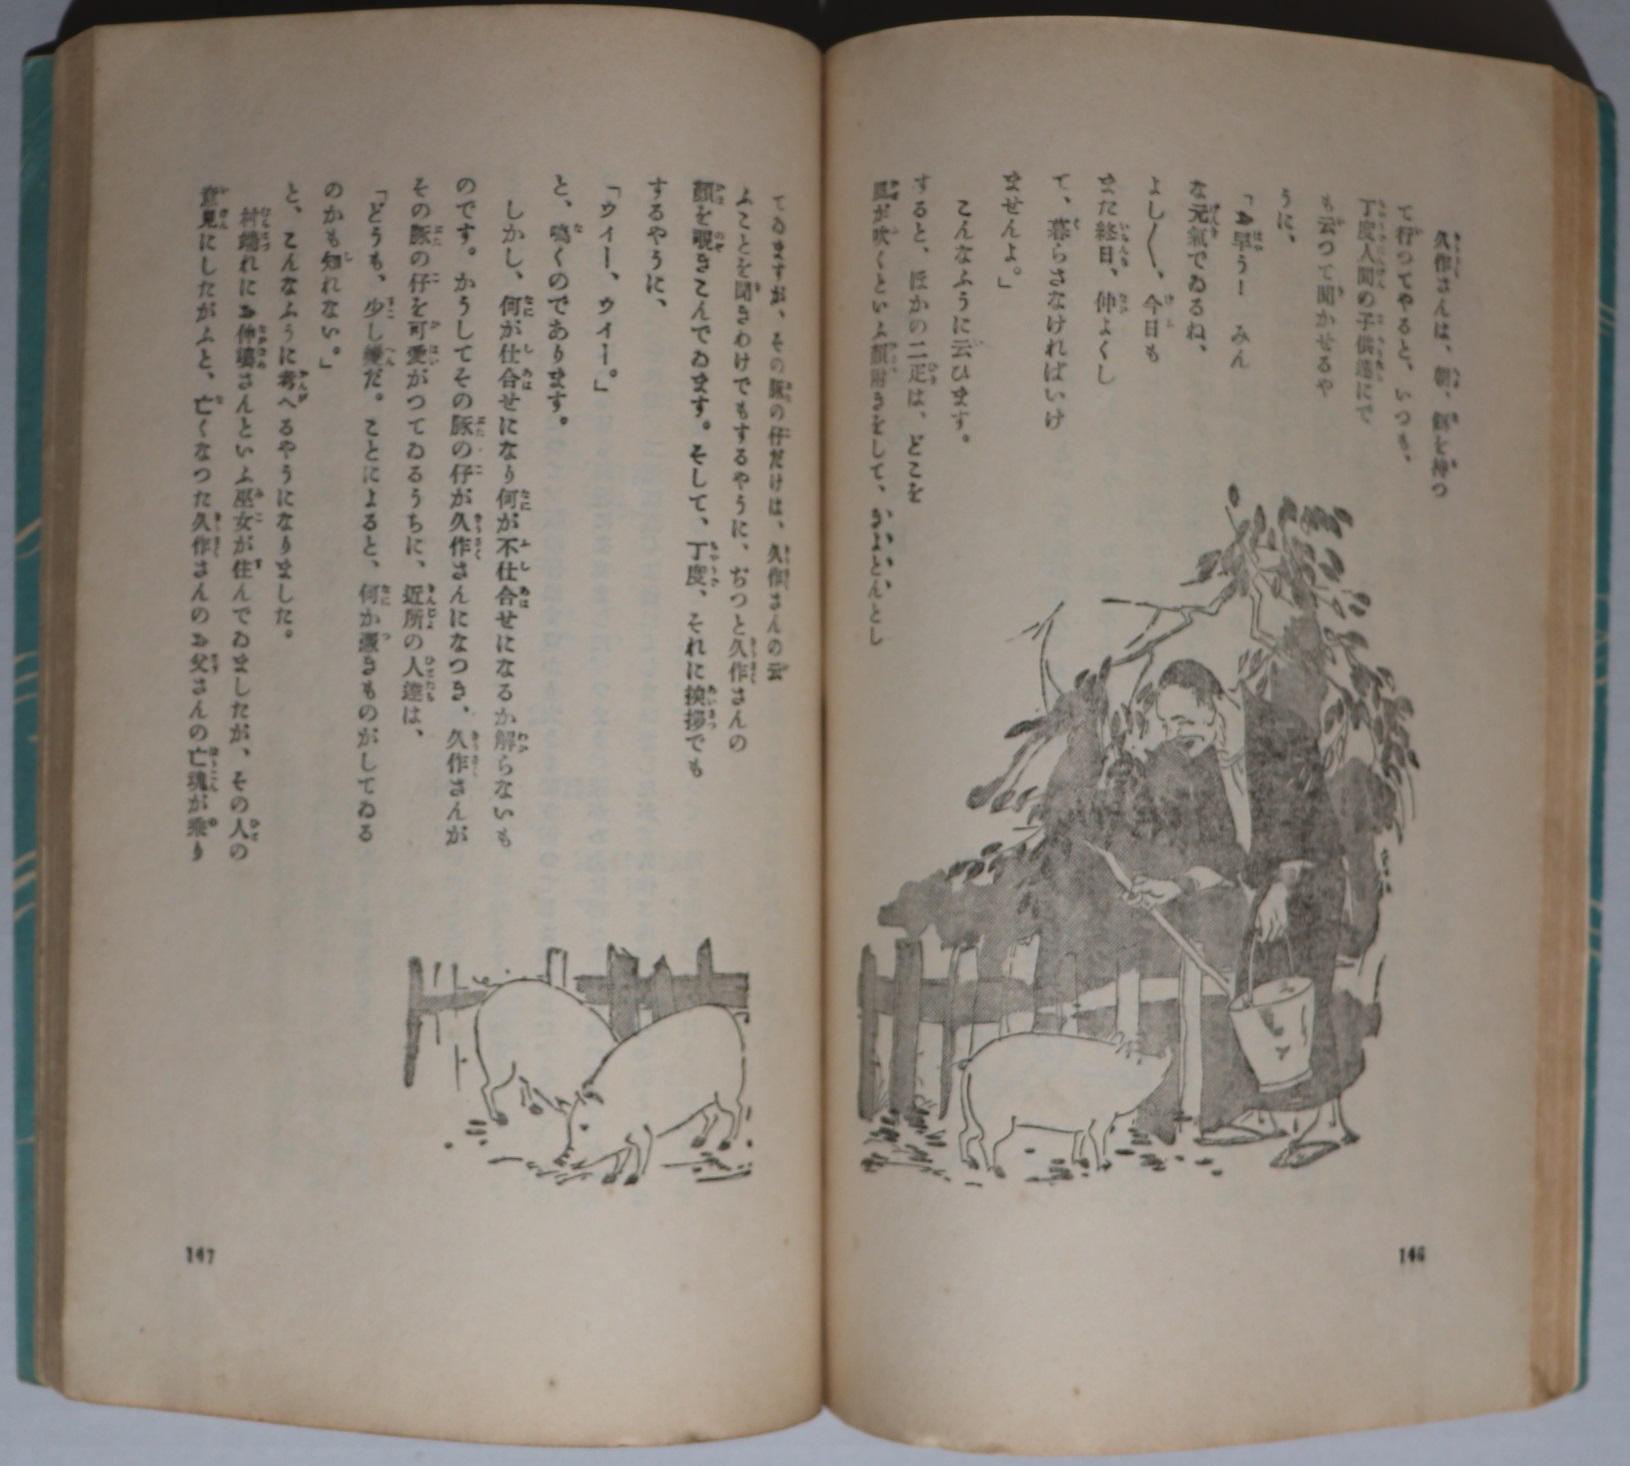 久作さんは、朝、餌を持つ
て行つてやると、いつも、
丁度人間の子供達にで
も云つて聞かせるや
うに、
「お早う！　みん
な元氣でゐるね、
よし〳〵、今日も
また終日、仲よくし
て、暮らさなければいけ
ませんよ。」
こんなふうに云ひます。
すると、ほかの二疋は、どこを
風が吹くといふ顔附きをして、きよとんとし
てゐますが、その豚の仔だけは、久作さんの云
ふことを聞きわけでもするやうに、ぢつと久作さんの
顔を覗きこんでゐます。そして、丁度、それに挨拶でも
するやうに、
「ウイー、ウイー。」
と、鳴くのであります。
しかし、何が仕合せになり何が不仕合せになるか解らないも
のです。かうしてその豚の仔が久作さんになつき、久作さんが
その豚の仔を可愛がつてゐるうちに、近所の人達は、
「どうも、少し變だ。ことによると、何か憑きものがしてゐる
のかも知れない。」
と、こんなふうに考へるやうになりました。
村端れにお仲婆さんといふ巫女が住んでゐましたが、その人の
意見にしたがふと、亡くなつた久作さんのお父さんの亡魂が乘り
146
147